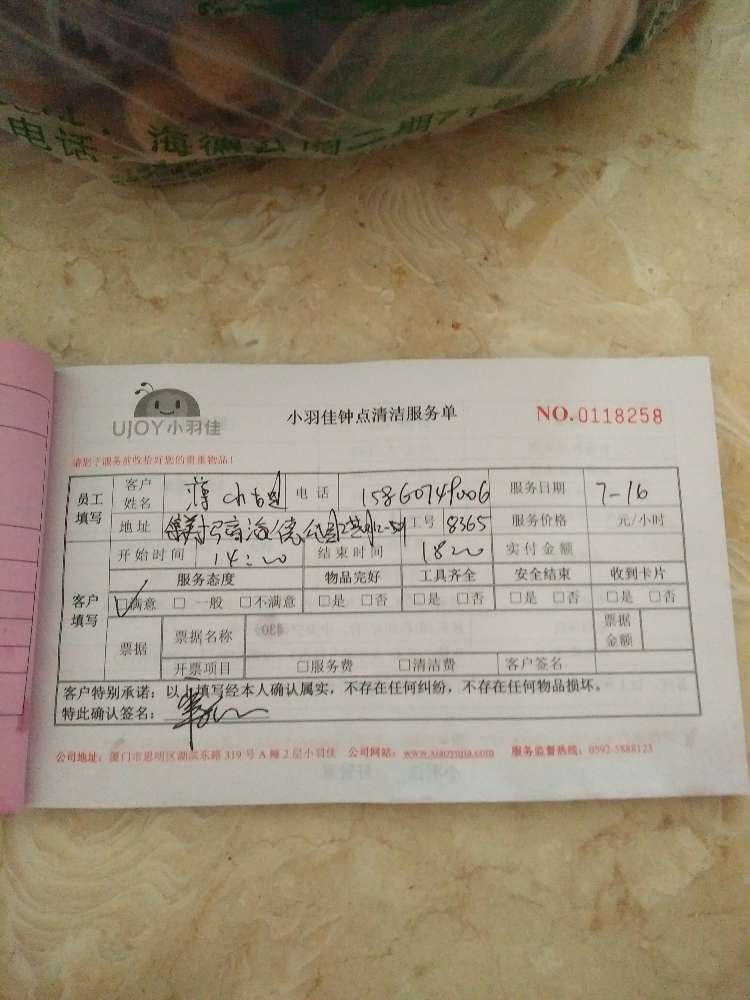 电话：海德公园二期71
UJOY小羽佳
小羽佳钟点清洁服务单
NO.0118258
请您于服务前收拾好您的贵重物品！
员工填写 客户姓名 薛 电话 15860749006 服务日期 7-16
地址 海德公园 工号 8365 服务价格 元/小时
客户填写 开始时间 14:20 结束时间 1820 实付金额
服务态度 物品完好 工具齐全 安全结束 收到卡片
☑满意 □ 一般 □不满意 □是 □否 □是 □否 □是 □否 □是 □否
票据 票据名称 票据金额
开票项目 □服务费 □清洁费 客户签名
客户特别承诺：以上填写经本人确认属实，不存在任何纠纷，不存在任何物品损坏。
特此确认签名：
公司地址：厦门市思明区湖滨东路 319 号 A 幢 2 层小羽佳 公司网站：www.xiaoyujia.com 服务监督热线：0592-5888123